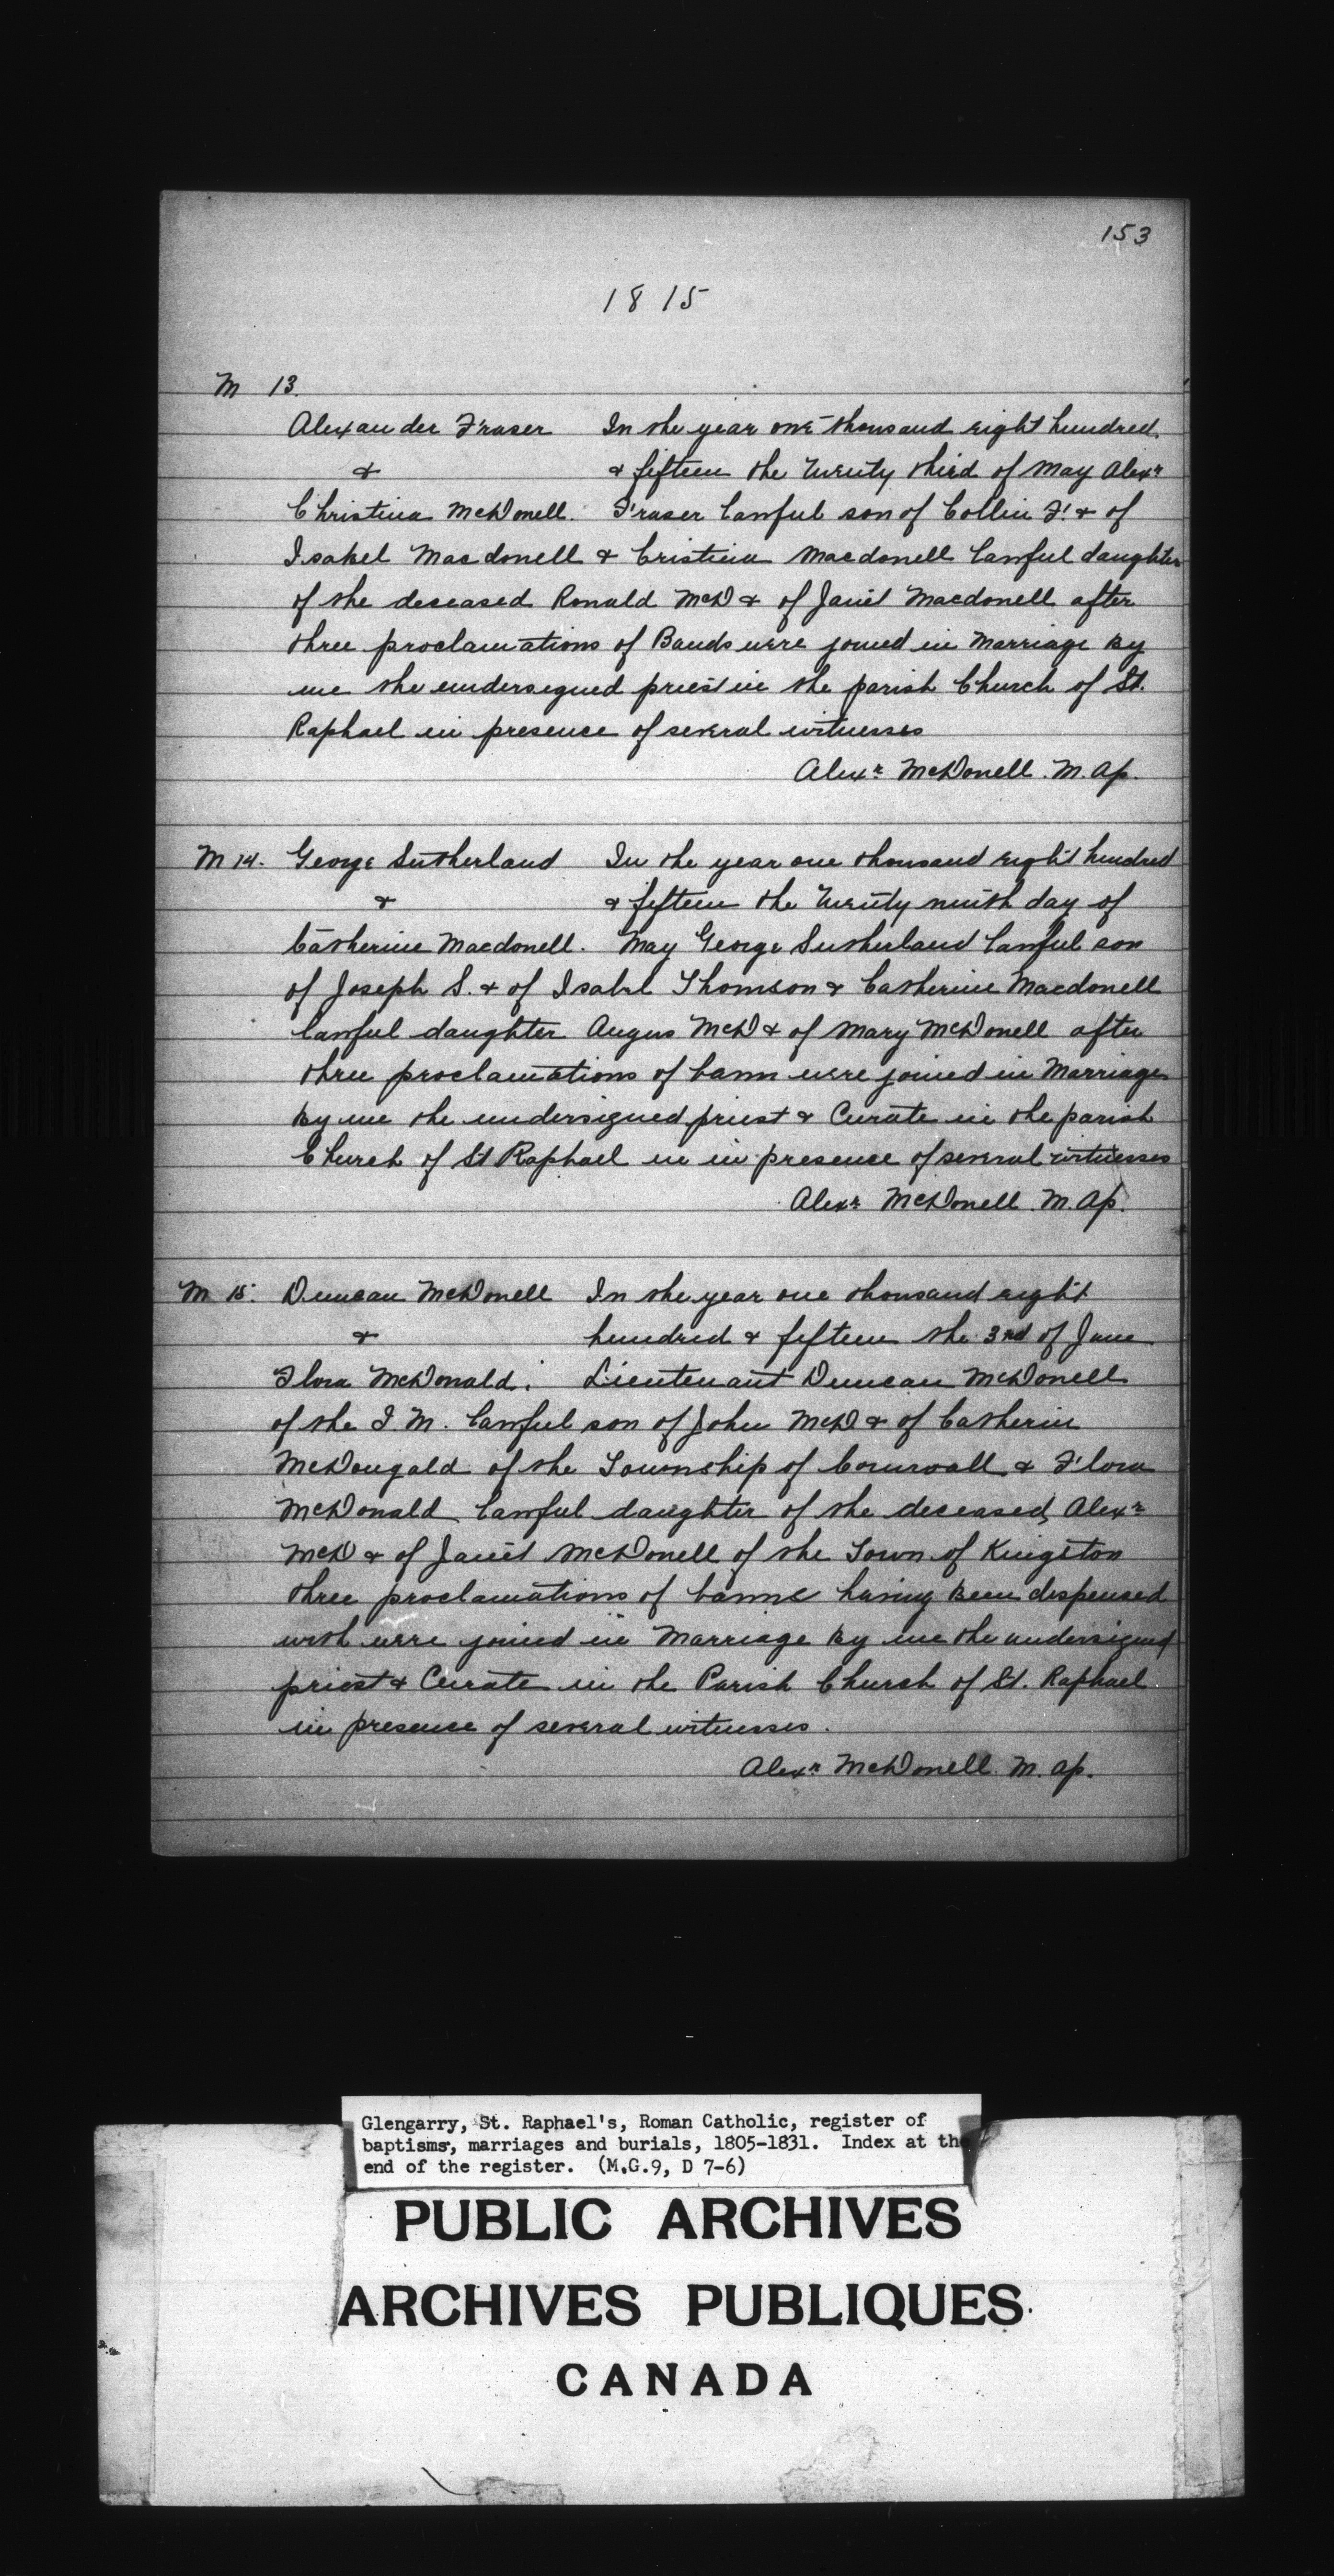 153
1815
M 13.
Alexander Fraser In the year one thousand eight hundred
& & fifteen the twenty third of May Alexr
Christina McDonell. Fraser lawful son of Collin F. & of
Isabel Macdonell & Cristina Macdonell lawful daughter
of the deceased Ronald McD & of Janet Macdonell after
three proclamations of Bands were joined in Marriage by
me the undersigned priest in the parish Church of St.
Raphael in presence of several witnesses
Alexr McDonell. M. Ap.
M 14. George Sutherland In the year one thousand eight hundred
& & fifteen the twenty ninth day of
Catherine Macdonell. May George Sutherland lawful son
of Joseph S. & of Isabel Thomson & Catherine Macdonell
lawful daughter Angus McD & of Mary McDonell after
three proclamations of bann were joined in Marriage
by me the undersigned priest & Curate in the parish
Church of St Raphael in in presence of several witnesses
Alexr McDonell. M. Ap.
M 15. Duncan McDonell In the year one thousand eight
& hundred & fifteen the 3rd of June
Flora McDonald. Lieutenant Duncan McDonell
of the I. M. lawful son of John McD & of Catherin
McDougald of the Township of Cornwall & Flora
McDonald lawful daughter of the deceased Alexr
McD & of Janet McDonell of the Town of Kingston
three proclamations of banns having been dispensed
with were joined in Marriage by me the undersigned
priest & Curate in the Parish Church of St. Raphael
in presence of several witnesses.
Alexr McDonell. M. ap.
Glengarry, St. Raphael's, Roman Catholic, register of
baptisms, marriages and burials, 1805-1831. Index at the
end of the register. (M.G.9, D 7-6)
PUBLIC ARCHIVES
ARCHIVES PUBLIQUES
CANADA